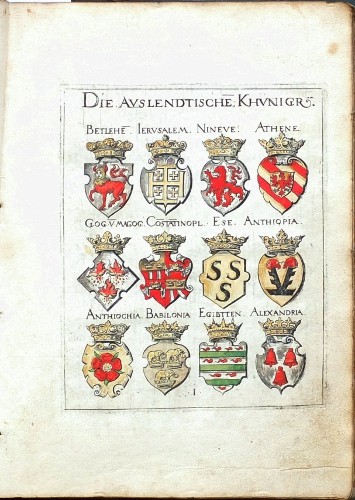 DIE AVSLENDTISCHE: KHVNIGR
BETLEHE̅. IERUSALEM. NINEVE: ATHENE.
GOG V MAGOG. COSTA̅TINOPL. ESE. ANTHIOPIA.
SSS
ANTHIOCHIA. BABILONIA EGIBTTEN. ALEXANDRIA.
I